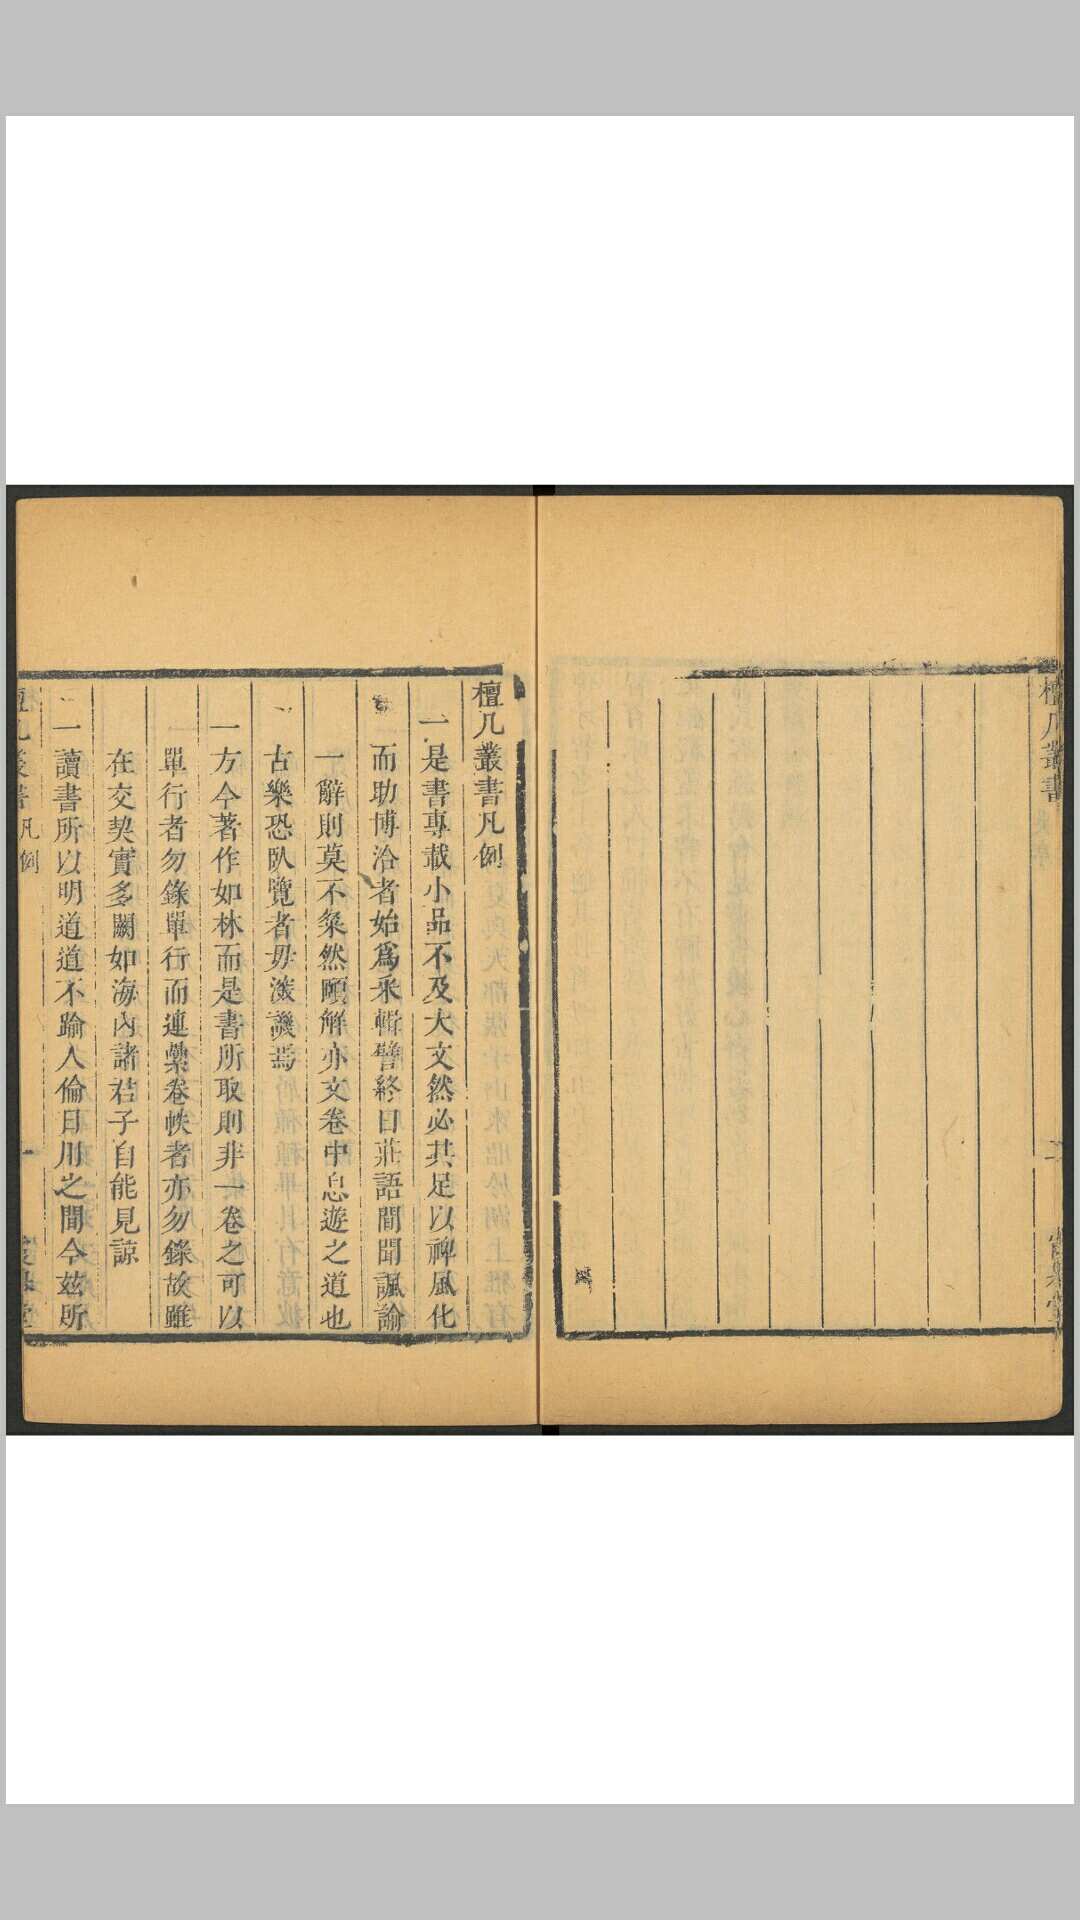 檀几叢書
檀几叢書凡例
一是書專載小品不及大文然必其足以裨風化
而助博洽者始爲采輯譬終日莊語間聞諷諭
一辭則莫不粲然頤解亦文卷中息遊之道也
古樂恐臥覽者毋深譏焉
一方今著作如林而是書所取則非一卷之可以
單行者勿錄單行而連橐卷帙者亦勿錄故雖
在交契實多闕如海內諸君子自能見諒
一讀書所以明道道不踰人倫日用之間今茲所
檀几叢書 凡例 一